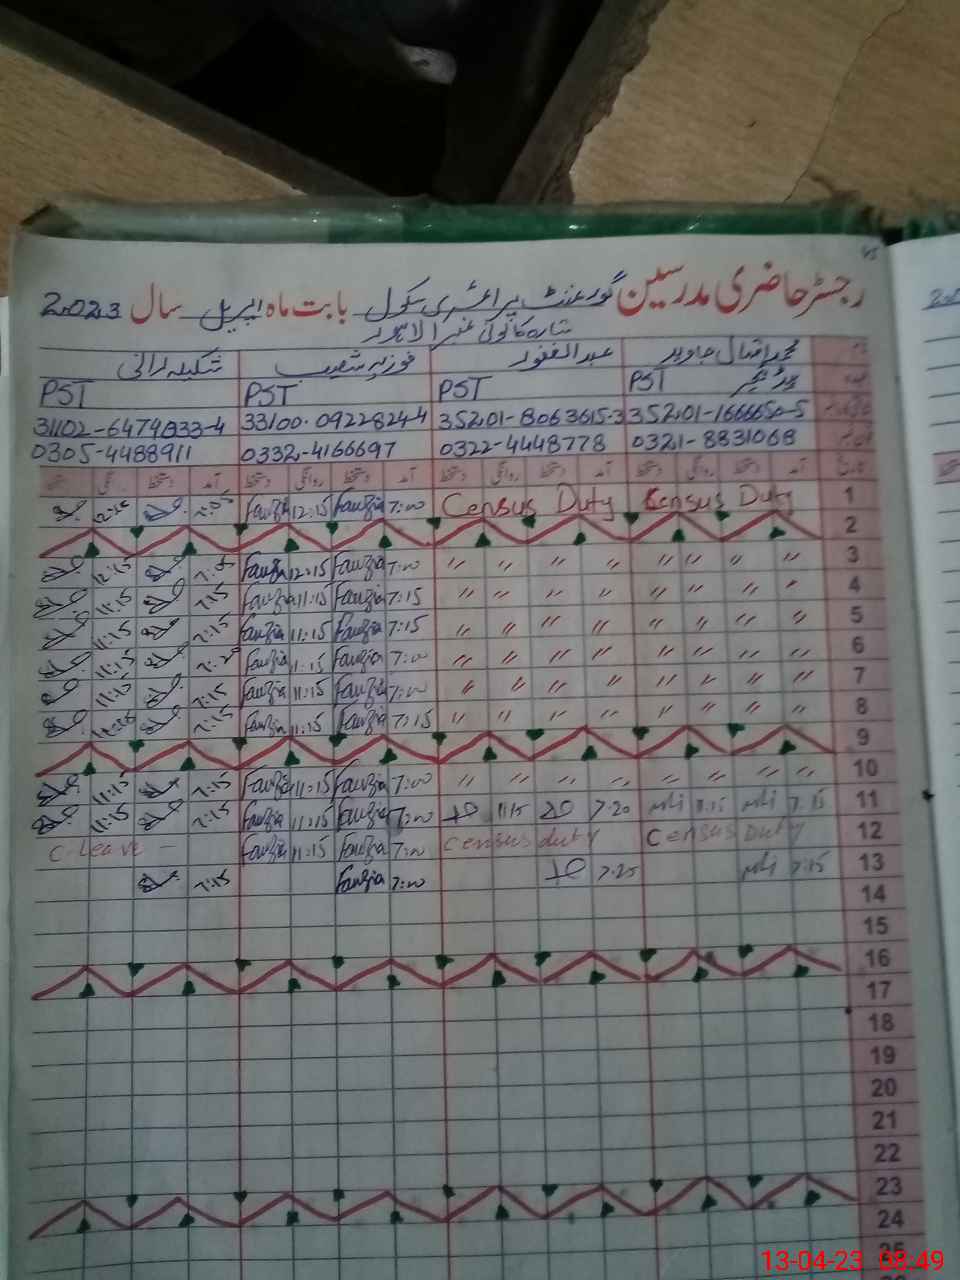 رجسٹر حاضری مدرسین گورنمنٹ پرائمری سکول بابت ماہ اپریل سال 2023
محمد اقبال جاوید عبدالغفور فوزیہ شعیب شکیلہ رانی
PST PST PST PST
35201-1666650-5 35201-8063615-3 33100-0922824-4 31102-6479833-4
0321-8831068 0322-4448778 0332-4166697 0305-4488911
آمد دستخط روانگی دستخط آمد دستخط روانگی دستخط آمد دستخط روانگی دستخط آمد دستخط روانگی دستخط
1 Census Duty Census Duty 7:00 Fauzia 12:15 Fauzia 7:05
2
3 〃 〃 〃 〃 〃 〃 〃 〃 7:00 Fauzia 12:15 Fauzia 12:15
4 〃 〃 〃 〃 〃 〃 〃 〃 7:15 Fauzia 11:15 Fauzia 7:15 11:15
5 〃 〃 〃 〃 〃 〃 〃 〃 7:15 Fauzia 11:15 Fauzia 7:15 11:15
6 〃 〃 〃 〃 〃 〃 〃 〃 7:00 Fauzia 11:15 Fauzia 7:20 11:15
7 〃 〃 〃 〃 〃 〃 〃 〃 7:00 Fauzia 11:15 Fauzia 7:15 11:15
8 〃 〃 〃 〃 〃 〃 〃 〃 7:15 Fauzia 11:15 Fauzia 7:15
9
10 〃 〃 〃 〃 〃 〃 〃 〃 7:00 Fauzia 11:15 Fauzia 7:15 11:15
11 7:15 11:15 7:20 11:15 7:00 Fauzia 11:15 Fauzia 7:15 11:15
12 Census Duty Census duty 7:00 Fauzia 11:15 Fauzia C-Leave -
13 7:15 7:25 7:00 Fauzia 7:15
14
15
16
17
18
19
20
21
22
23
24
25
13-04-23 08:49